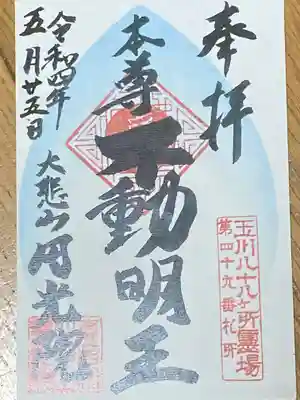 奉拝
玉川八十八ヶ所霊場
第四十九番札所
本尊
不動明王
令和四年
五月廿五日
大悲山円光院